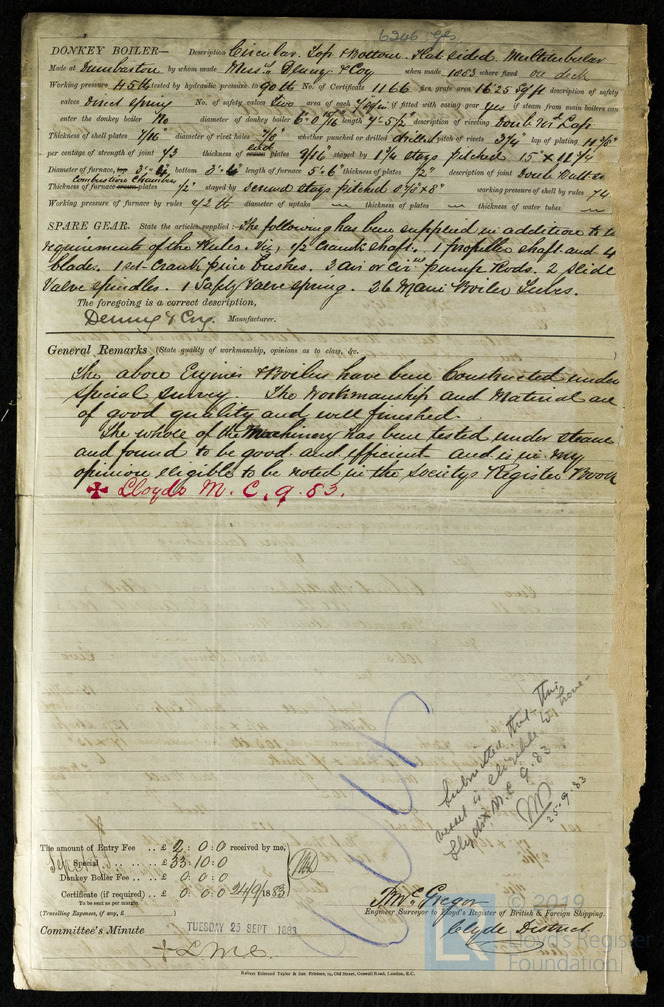 6246 Gls
DONKEY BOILER— Description Circular. Top & Bottom. Flat sided. Multitubular
Made at Dumbarton by whom made Mess.rs Denny & Coy when made 1883 where fixed on deck
Working pressure 45 lb tested by hydraulic pressure to 90 lb No. of Certificate 1166 fire grate area 16.25 sq ft description of safety
valves Direct spring No. of safety valves Two area of each if fitted with easing gear yes if steam from main boilers can
enter the donkey boiler No diameter of donkey boiler length description of riveting Double Riv Lap
Thickness of shell plates 7/16" diameter of rivet holes 7/8" whether punched or drilled drilled pitch of rivets 3 1/4" lap of plating
per centage of strength of joint 73 thickness of end plates 9/16" stayed by 1 3/4 stays pitched 15" x 11 3/4
Diameter of furnace, top bottom 3'. length of furnace 5'.6 thickness of plates 1/2" description of joint Double Butted
Combustion Chamber
Thickness of furnace plates 1/2" stayed by Screwed stays pitched working pressure of shell by rules 74
Working pressure of furnace by rules diameter of uptake — thickness of plates — thickness of water tubes —
SPARE GEAR. State the articles supplied:— The following has been supplied in addition to the
requirements of the Rules. Viz, 1/2 Crank shaft. 1 propeller shaft and 4
blades. 1 set Crank pins bushes. 3 air or Cir.g pump Rods. 2 Slide
Valve spindles. 1 Safety Valve spring. 36 Main Boiler Tubes.
The foregoing is a correct description,
Denny & Coy. Manufacturer.
General Remarks (State quality of workmanship, opinions as to class, &c.
The above Engines & Boilers have been Constructed under
special survey. The Workmanship and Material are
of good quality and well finished.
The whole of the Machinery has been tested under steam
and found to be good and efficient and is in my
opinion eligible to be noted in the Society's Register Book
✠ Lloyd's M. C. 9. 83.
Submitted that this
vessel is eligible to have
Lloyd's M.C. 9.83
25.9.83
The amount of Entry Fee .. £ 2 : 0 : 0 received by me,
Special .. .. .. £ 33 : 10 : 0
Donkey Boiler Fee .. £ 0 : 0 : 0
Certificate (if required) .. £ 0 : 0 : 0 24/9/1883
To be sent as per margin.
(Travelling Expenses, if any, £ )
Committee's Minute
TUESDAY 25 SEPT 1883
+ L.M.C.
McGregor
Engineer Surveyor to Lloyd's Register of British & Foreign Shipping.
Clyde District.
© 2019
Lloyd's Register
Foundation
Robert Edmund Taylor & Son Printers, 19, Old Street, Goswell Road, London, E.C.